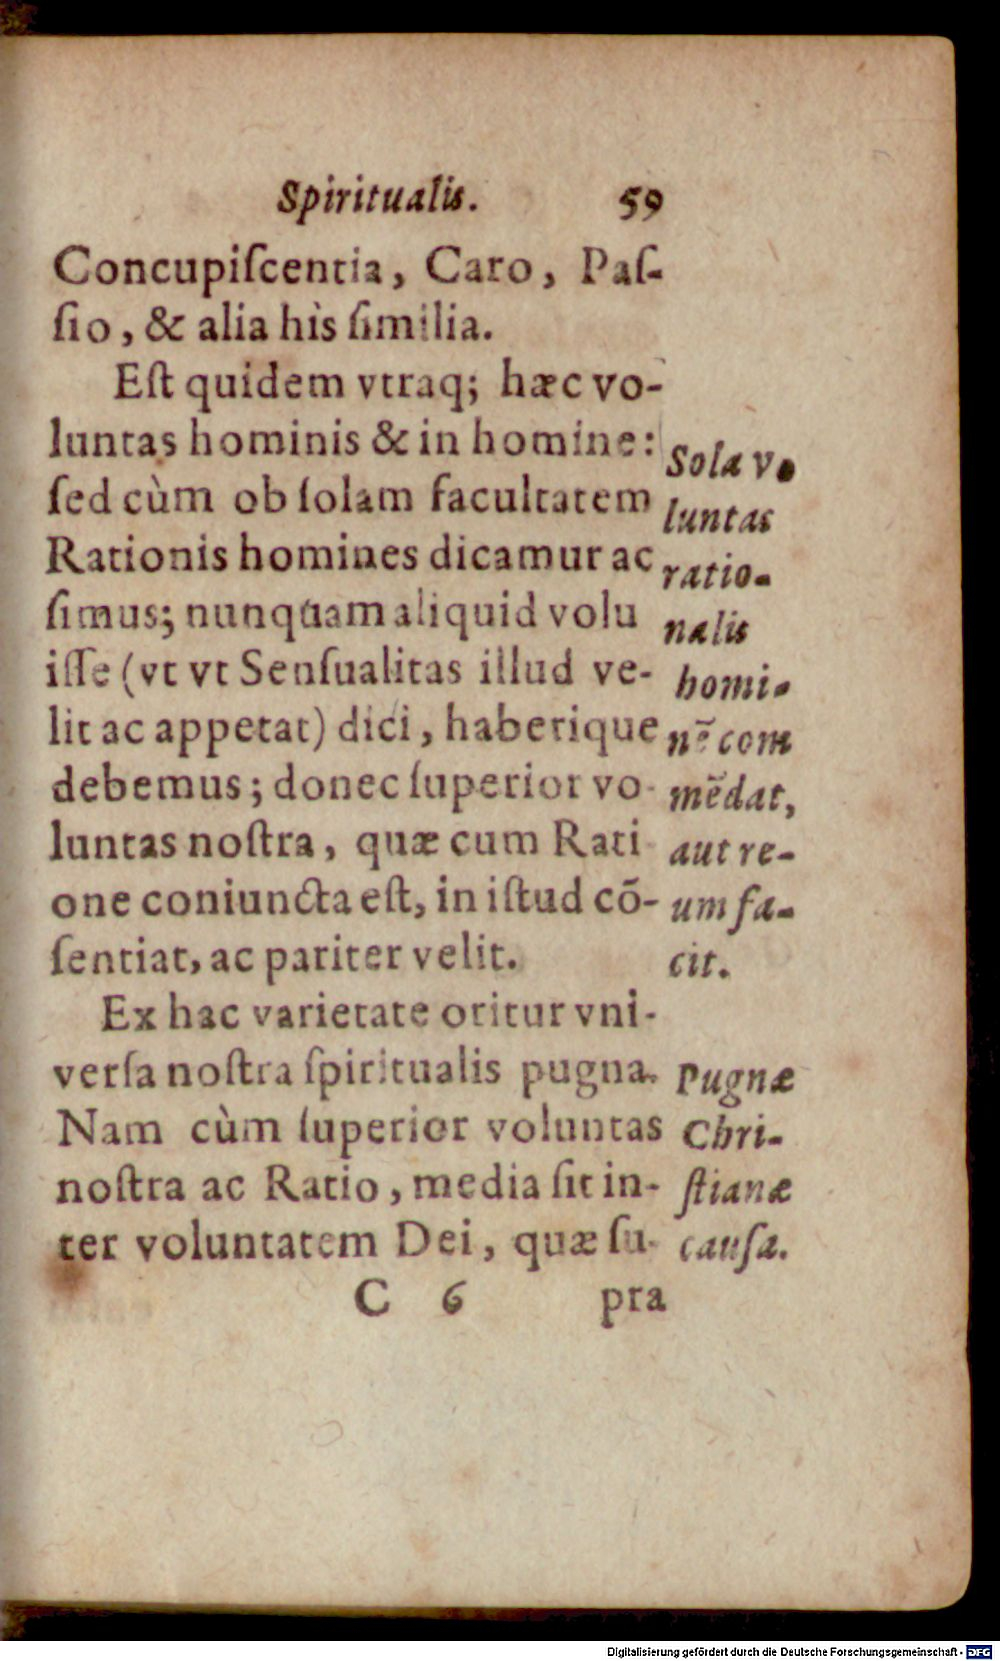 Spiritualis. 59
Concupiſcentia, Caro, Paſ-
ſio, & alia hìs ſimilia.
Eſt quidem vtraq; hæc vo-
luntas hominis & in homine:
ſed cùm ob ſolam facultatem
Rationis homines dicamur ac
ſimus; nunquam aliquid volu
iſſe (vt vt Senſualitas illud ve-
lit ac appetat) dici, haberique
debemus; donec ſuperior vo-
luntas noſtra, quæ cum Rati
one coniuncta eſt, in iſtud cō-
ſentiat, ac pariter velit.
Ex hac varietate oritur vni-
verſa noſtra ſpiritualis pugna.
Nam cùm ſuperior voluntas
noſtra ac Ratio, media ſit in-
ter voluntatem Dei, quæ ſu-
Sola vo
luntas
ratio-
nalis
homi-
nē com
mēdat,
aut re-
um fa-
cit.
Pugnæ
Chri-
ſtianæ
cauſa.
C 6 pra
Digitalisierung gefördert durch die Deutsche Forschungsgemeinschaft - DFG